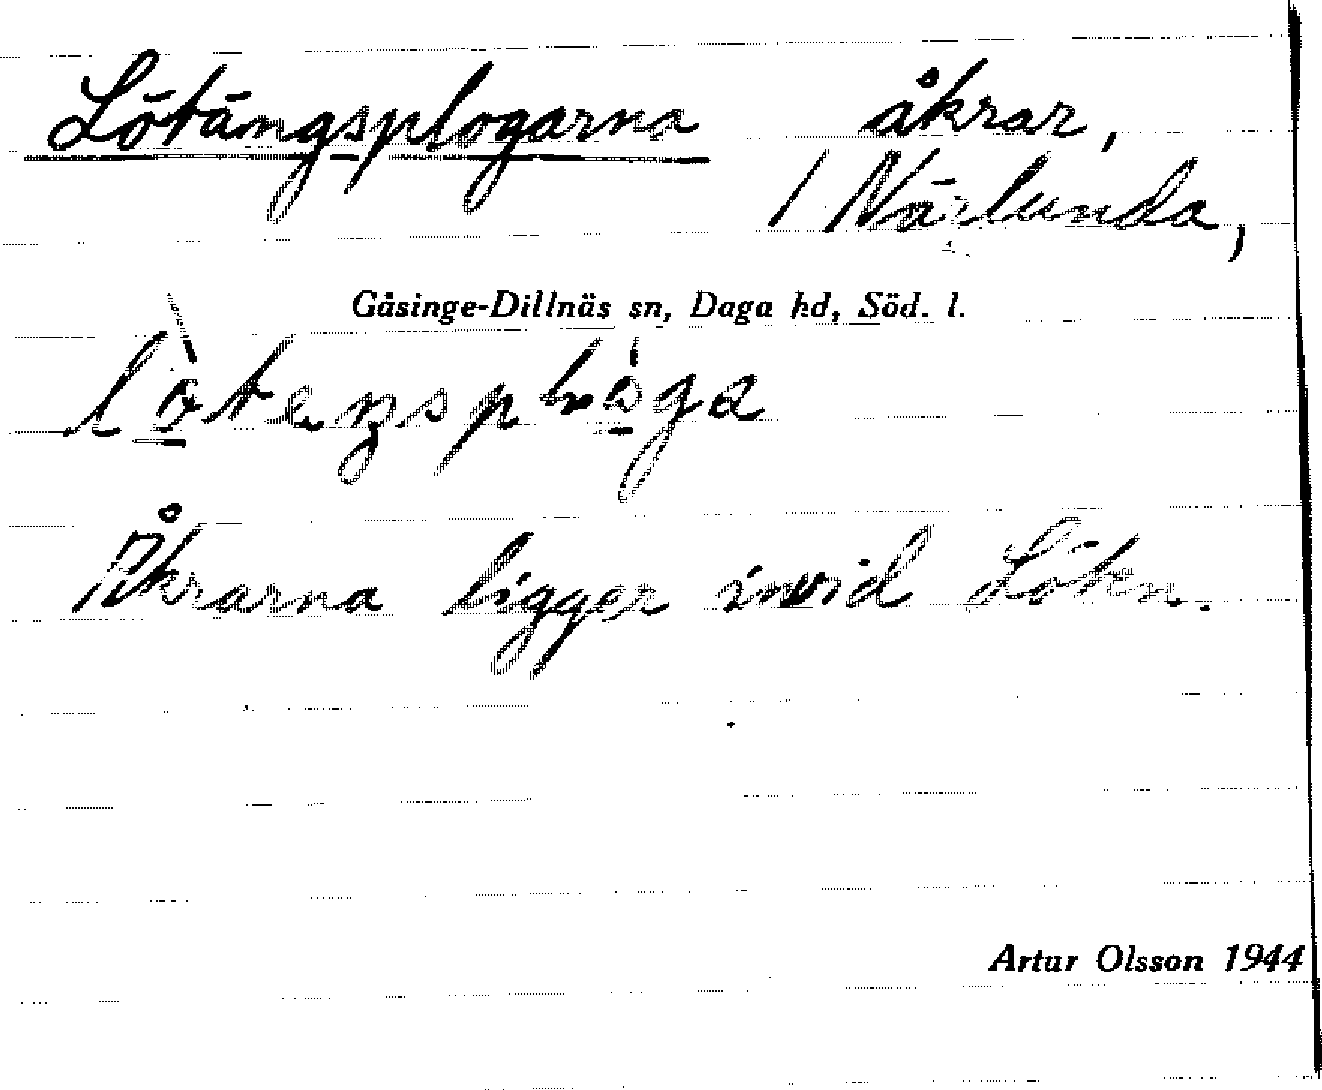 Lötängsplogarna åkrar,
/ Närlunda,
Gåsinge-Dillnäs sn, Daga hd, Söd. l.
Åkrarna ligger invid Löten.
Artur Olsson 1944